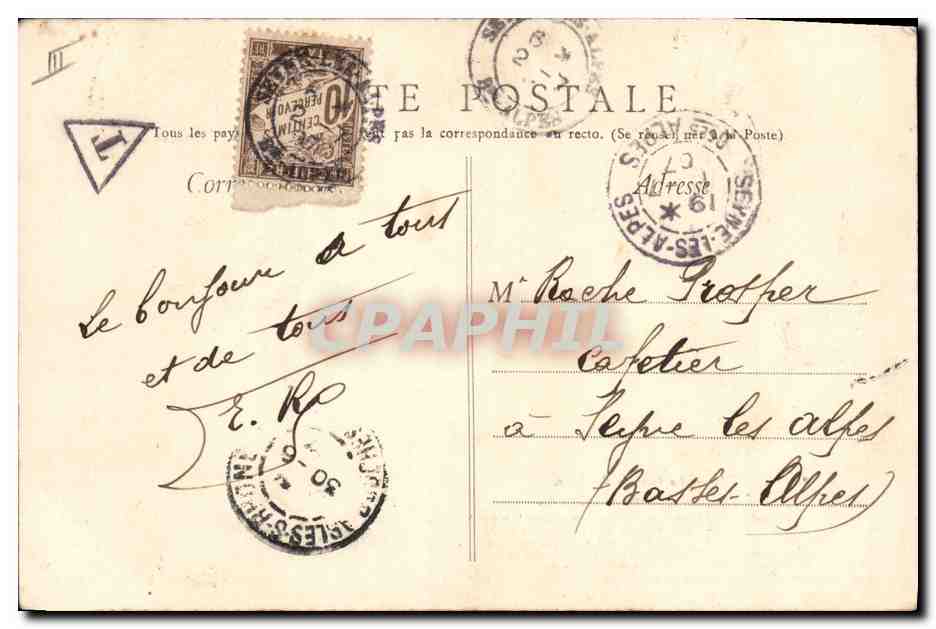 CARTE POSTALE
Tous les pays pas la correspondance au recto. (Se renseigner à la Poste)
T
10
CENTIM
PERCEVOIR
Adresse
SEYNE-LES-ALPES
19
Le bonjour à tous
et de tous
E. R
Mr Roche Prosper
cafetier
à Seyne les alpes
(Basses-Alpes)
CPAPHIL
ARLES-S-RHONE
30 - 6